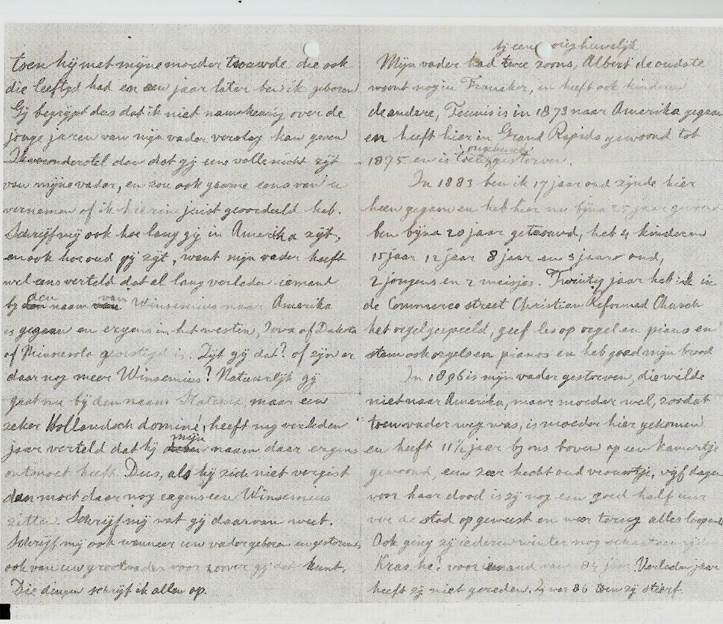 toen hij met mijne moeder trouwde die ook
die leeftijd had en een jaar later ben ik geboren
Gij begrijpt dus dat ik niet nauwkeurig over de
jonge jaren van mijn vader verslag kan geven
Ik veronderstel dan dat gij eene volle nicht zijt
van mijne vader, en zou ook gaarne eens van u
vernemen of ik hierin juist geoordeeld heb.
Schrijf mij ook hoe lang gij in Amerika zijt,
en ook hoe oud gij zijt, want mijn vader heeft
wel eens verteld dat al lang verleden iemand
bij den naam van Winsemius naar Amerika
is gegaan en ergens in het westen, Iowa of Dakota
of Minnesota gevestigd is. Zijt gij dat? of zijn er
daar nog meer Winsemius? Natuurlijk gij
gaat nu bij den naam maar een
zeker Hollandsch dominé, heeft mij verleden
jaar verteld dat hij mijn naam daar ergens
ontmoet heeft. Dus, als hij zich niet vergist
dan moet daar nog ergens een Winsemius
zitten. Schrijf mij wat gij daarvan weet.
Schrijf mij ook wanneer uw vader geboren en gestorven,
ook van uw grootvader voor zoover gij dat kunt.
Die dingen schrijf ik allen op.
bij een vorig huwelijk
Mijn vader had twee zoons, Albert de oudste
woont nog in Franeker, en heeft ook kinderen
de andere, Teunis is in 1873 naar Amerika gegaan
en heeft hier in Grand Rapids gewoond tot
1875 en is toen ongehuwd gestorven.
In 1883 ben ik 17 jaar oud zijnde hier
heen gegaan en heb hier nu bijna 25 jaar gewoond
ben bijna 20 jaar getrouwd, heb 4 kinderen
15 jaar 12 jaar 8 jaar en 3 jaar oud,
2 jongens en 2 meisjes. Twintig jaar heb ik in
de Commerce street Christian Reformed Church
het orgel gespeeld, geef les op orgel en piano en
stem ook orgels en pianos en heb goed mijn brood
In 1896 is mijn vader gestorven, die wilde
niet naar Amerika, maar moeder wel, zoodat
toen vader weg was, is moeder hier gekomen
en heeft 11½ jaar bij ons boven op een kamertje
gewoond, een zeer hecht oud vrouwtje, vijf dagen
voor haar dood is zij nog een goed half uur
de stad op geweest en weer terug alles loopend
Ook ging zij iederen winter nog schaatsenrijden
Kras, he? voor iemand van 84 jaar. Verleden jaar
heeft zij niet gereden. Zij was 86 toen zij stierf.